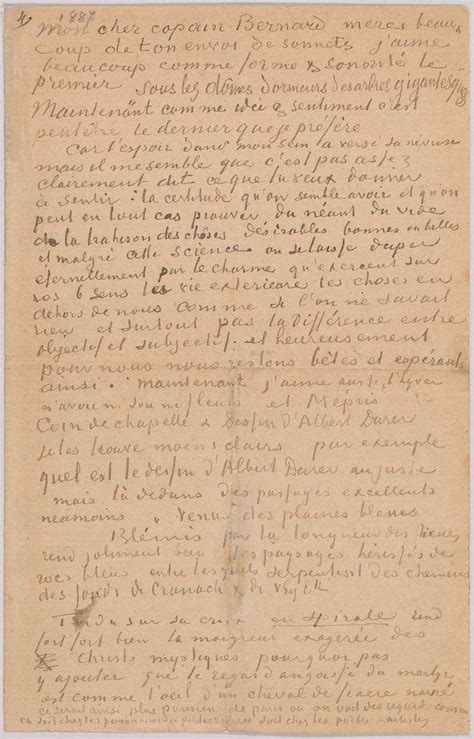 4 1887
Mon cher copain Bernard merci beau
coup de ton envoi de sonnets j'aime
beaucoup comme forme & sonorité le
premier sous les dômes dormeurs des arbres gigantesques
Maintenant comme idée & sentiment c'est
peut être le dernier que je préfère
Car l'espoir dans mon sein a versé sa névrose
mais il me semble que c'est pas assez
clairement dit ce que tu veux donner
à sentir : la certitude qu'on semble avoir et qu'on
peut en tout cas prouver, du néant du vide
de la trahison des choses désirables bonnes ou belles
et malgré cette science on se laisse duper
éternellement par le charme qu'exercent sur
nos 6 sens la vie extérieure les choses en
dehors de nous comme si l'on ne savait
rien et surtout pas la différence entre
objectif et subjectif. et heureusement
pour nous nous restons bêtes et espérants
ainsi. maintenant j'aime aussi l'hyver
n'avoir ni sou ni fleurs et Mépris
Coin de chapelle & Dessin d'Albert Durer
je les trouve moins clairs par exemple
quel est le dessin d'Albert Durer au juste
mais là dedans des passages excellents
néamoins " Venus des plaines bleues
Blémis par la longueur des lieues
rend joliment bien les paysages hérissés de
rocs bleus entre lesquels serpentent des chemins
des fonds de Cranach & de v Eyck
Tordu sur sa croix en spirale rend
fort fort bien la maigreur exagérée des
Christs mystiques pourquoi pas
y ajouter que le regard angoissé du martyr
est comme l'oeil d'un cheval de fiacre navré
ce serait ainsi plus parisien de paris où on voit des regards comme
ca soit chez les des petites voitures soit chez les poètes & artistes